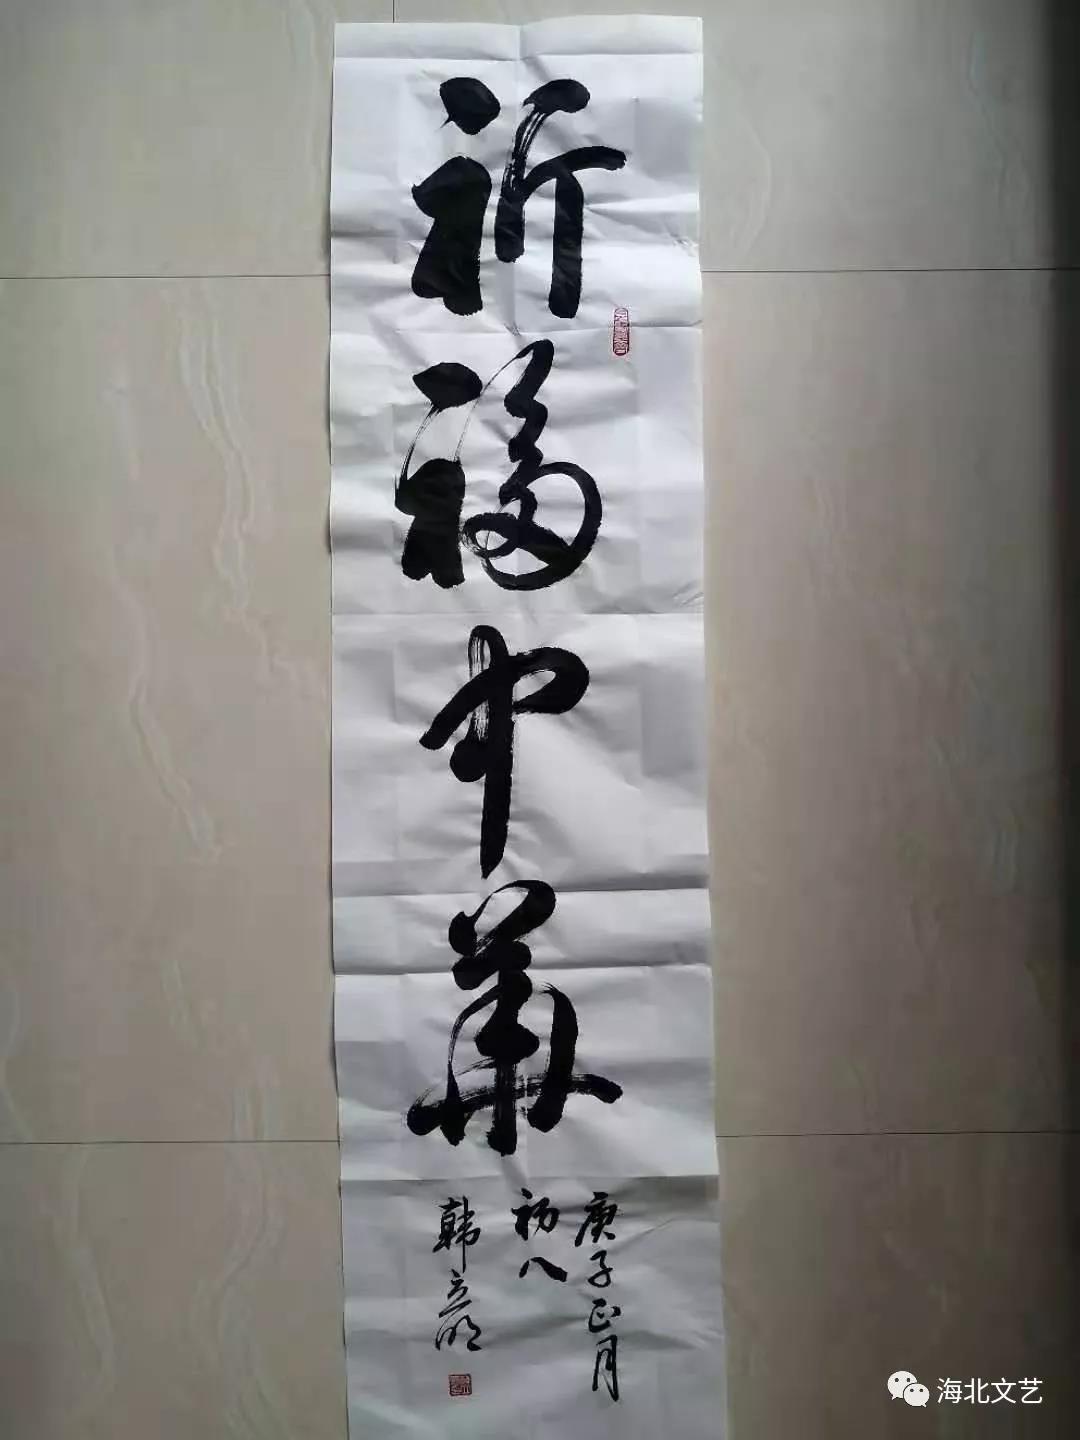 祈福中華
庚子正月
初八
韩立明
海北文艺